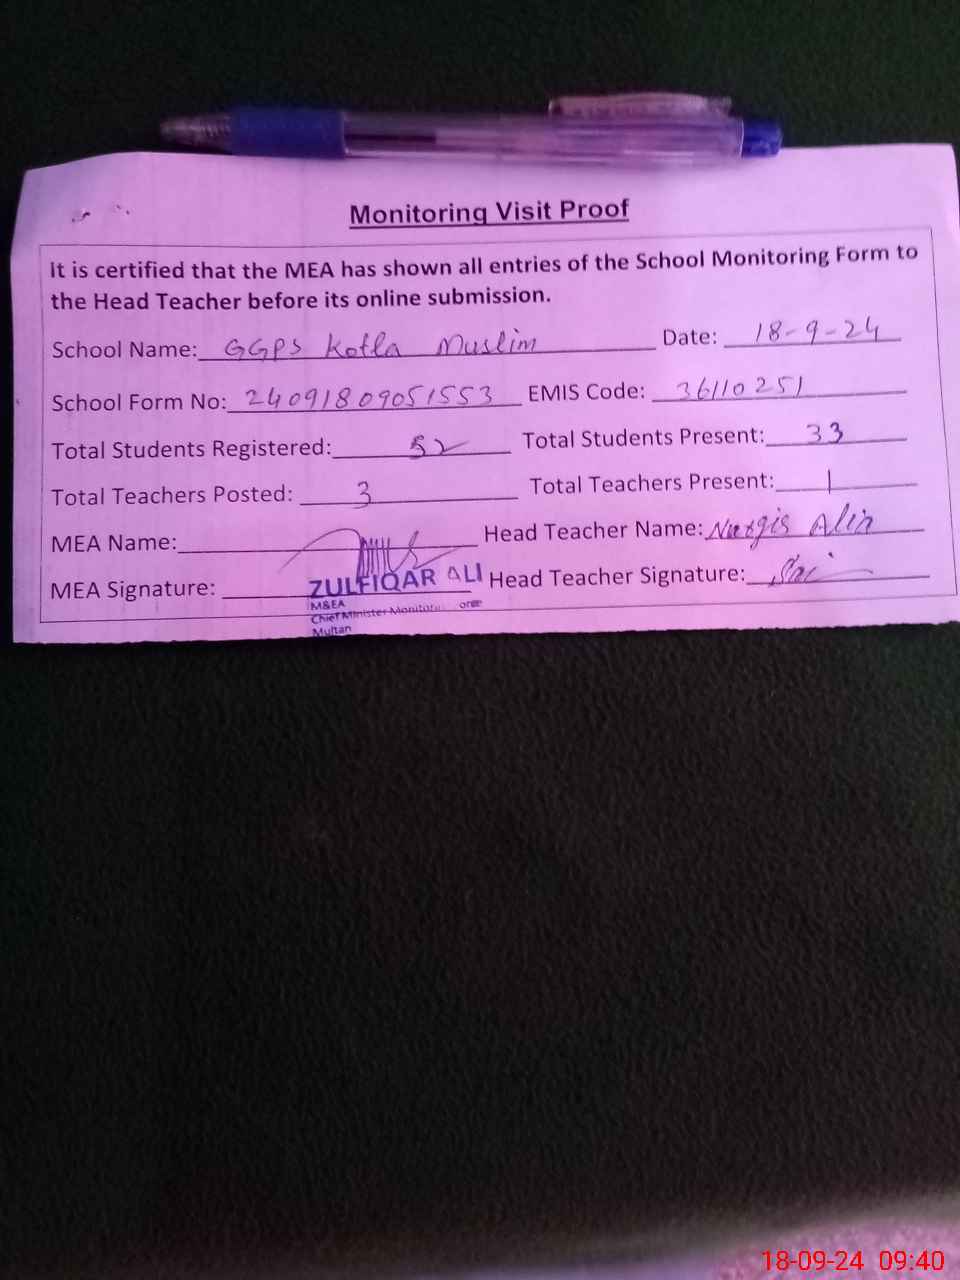 Monitoring Visit Proof
It is certified that the MEA has shown all entries of the School Monitoring Form to
the Head Teacher before its online submission.
School Name: GGPS Kotla Muslim Date: 18-9-24
School Form No: 24091809051553 EMIS Code: 36110251
Total Students Registered: 52 Total Students Present: 33
Total Teachers Posted: 3 Total Teachers Present: 1
MEA Name: Head Teacher Name: Nargis
MEA Signature: Head Teacher Signature:
ZULFIQAR ALI
M&EA
Chief Minister Monitoring
Multan
18-09-24 09:40